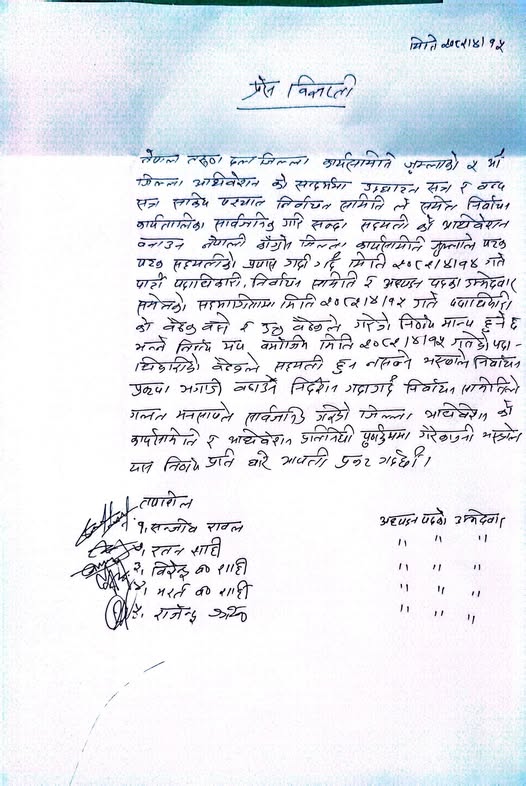 मिति २०८२/४/१५
प्रेस विज्ञप्ती
नेपाल तरुण दल जिल्ला कार्यसमिति जुम्लाको ५ औं
जिल्ला अधिवेशन को सन्दर्भमा उद्घाटन सत्र र बन्द
सत्र सकिए पश्चात निर्वाचन समिति ले समेत निर्वाचन
कार्यतालिका सार्वजनिक गरि सक्दा सहमती को अधिवेशन
बनाउन नेपाली काँग्रेस जिल्ला कार्यसमिति जुम्लाले पटक
पटक सहमतीको प्रयास गर्दा गर्दै मिति २०८२/४/१४ गते
पार्टी पदाधिकारी, निर्वाचन समिति र अध्यक्ष पदका उम्मेदवार
समेतको सहभागितामा मिति २०८२/४/१५ गते पदाधिकारी
को बैठक बस्ने र उक्त बैठकले गरेको निर्णय मान्य हुने छ
भन्ने निर्णय भए बमोजिम मिति २०८२/४/१५ गतेको पदा-
धिकारीको बैठकले सहमती हुन नसक्ने भएकाले निर्वाचन
प्रकृया अगाडी बढाउन निर्देशन गर्दागर्दै निर्वाचन समितिले
गलत मनसायले सार्वजनिक गरेको जिल्ला अधिवेशन को
कार्यसमिति र अधिवेशन प्रतिनिधी पुर्णरुपमा गैरकानुनी भएकोले
यस निर्णय प्रति घोर आपत्ती प्रकट गर्दछौं।
तपशिल
१, सन्जीव रावल अध्यक्ष पदका उम्मेदवार
२, रतन शाही " " "
३, विरेन्द्र ब. शाही " " "
४, भरत ब. शाही " " "
५, राजेन्द्र " " "